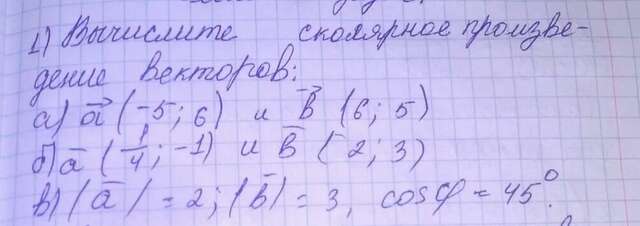 1) Вычислите сколярное произве-
дение векторов:
а) a⃗ (-5; 6) и b⃗ (6; 5)
б) a̅ (1/4; -1) и b̅ (2; 3)
в) |a̅| = 2; |b̅| = 3, cos φ = 45°.